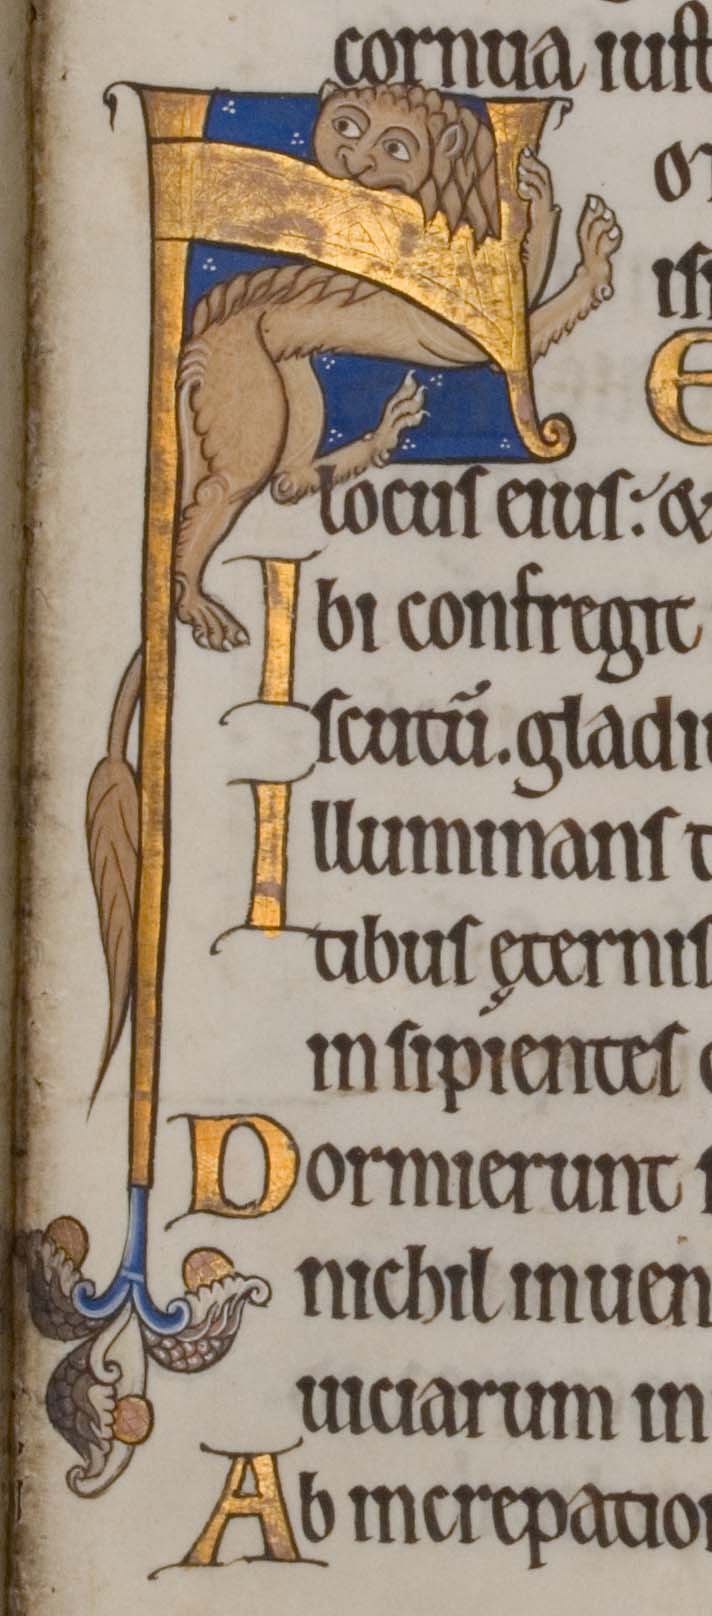 cornua iust
N o
is
E
locus eius: &
Ibi confregit
scutū. gladiu
Illuminans t
tibus ęternis
insipientes
Dormierunt
nichil inuen
uiciarum in
Ab increpatio